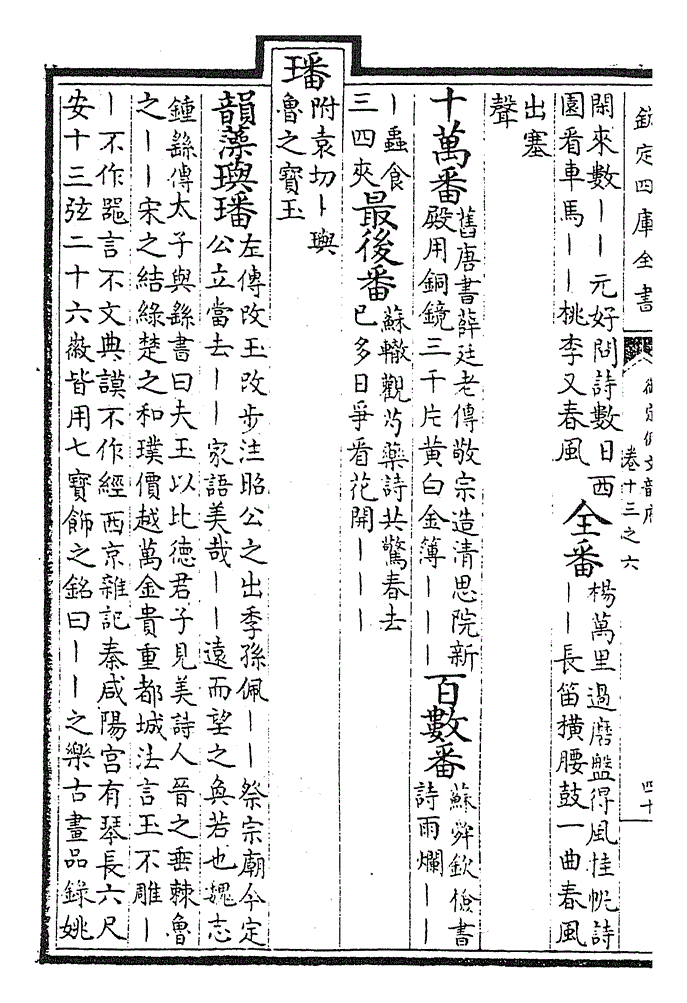 欽定四庫全書
御定佩文韻府
卷十三之六
四十
閑來數丨丨元好問詩數日西
園看車馬丨丨桃李又春風
全番
楊萬里過磨盤得風挂帆詩
丨丨長笛橫腰鼓一曲春風
出塞
聲
十萬番
舊唐書薛廷老傳敬宗造清思院新
殿用銅鏡三千片黃白金簿丨丨丨
百數番
蘇舜欽檢書
詩雨爛丨丨
丨蟲食
三四夾
最後番
蘇轍觀芍藥詩共驚春去
已多日爭看花開丨丨丨
璠
附袁切丨璵
魯之寶玉
韻藻璵璠
左傳改玉改步注昭公之出季孫佩丨丨祭宗廟今定
公立當去丨丨家語美哉丨丨遠而望之奐若也魏志
鍾繇傳太子與繇書曰夫玉以比德君子見美詩人晉之垂棘魯
之丨丨宋之結綠楚之和璞價越萬金貴重都城法言玉不雕丨
丨不作器言不文典謨不作經西京雜記秦咸陽宮有琴長六尺
安十三弦二十六徽皆用七寶飾之銘曰丨丨之樂古畫品錄姚